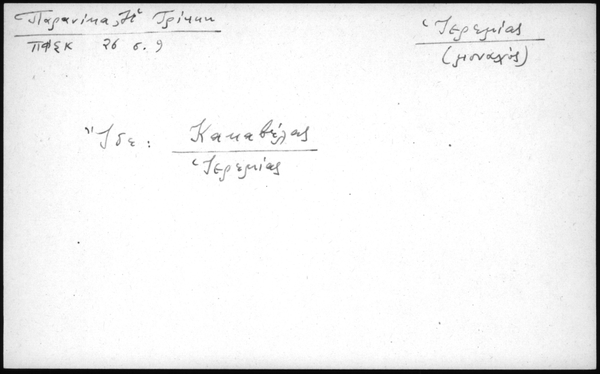 Παρανίκα, Ἡ Γρίκικη
ΠΦΣΚ 26 σ. 9
Ἱερεμίας
(μοναχός)
Ἴδε: Κακαβέλας
Ἱερεμίας